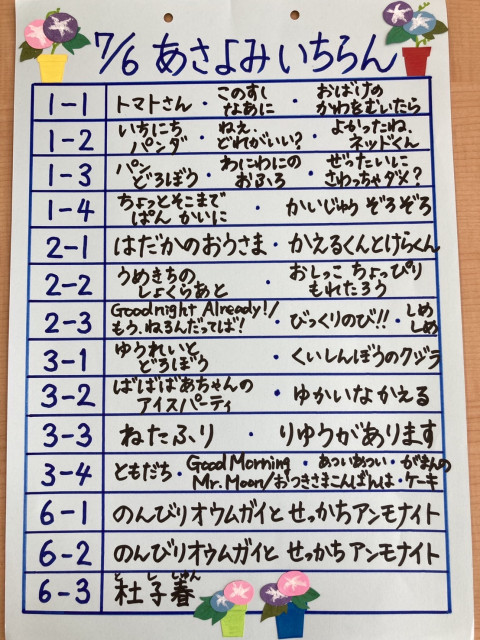 7/6 あさよみ いちらん
1-1 トマトさん・このすしなあに・おばけのかわをむいたら
1-2 いちにちパンダ・ねえ、どれがいい?・よかったね、ネッドくん
1-3 パンどろぼう・わにわにのおふろ・ぜったいにさわっちゃダメ?
1-4 ちょっとそこまでぱん かいに・かいじゅう ぞろぞろ
2-1 はだかのおうさま・かえるくんとけらくん
2-2 うめきちのしょくらあと・おしっこ ちょっぴりもれたろう
2-3 Goodnight Already!/もう、ねるんだってば!・びっくりのび!!・しめしめ
3-1 ゆうれいとどろぼう・くいしんぼうのクジラ
3-2 ばばばあちゃんのアイスパーティ・ゆかいな かえる
3-3 ねたふり・りゆうがあります
3-4 ともだち・Good Morning Mr. Moon/おつきさまこんばんは・あついあつい・がまんのケーキ
6-1 のんびりオウムガイと せっかちアンモナイト
6-2 のんびりオウムガイと せっかちアンモナイト
6-3 杜子春 と し しゅん